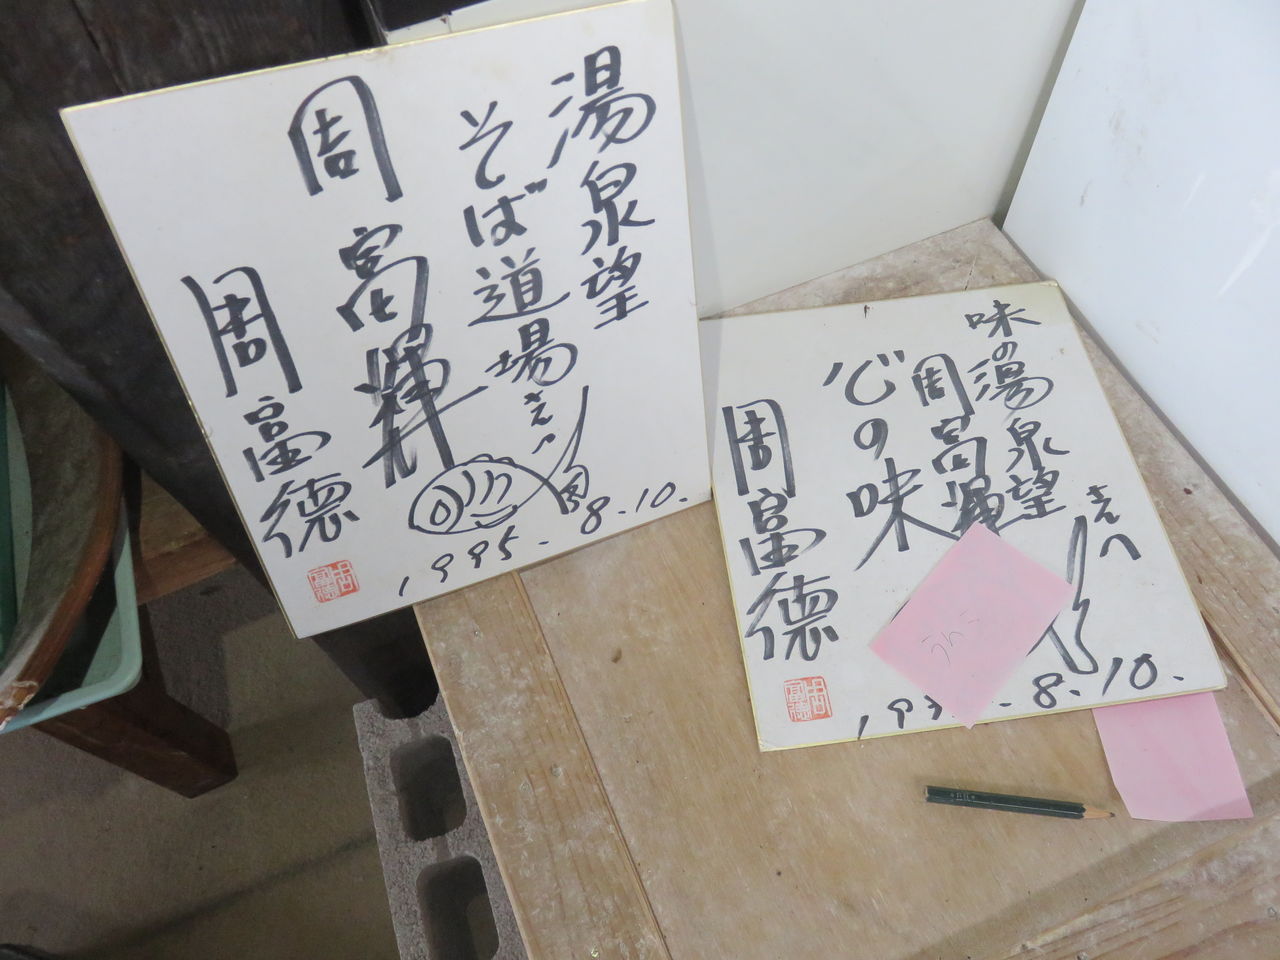 湯泉望
そば道場さんへ
周富輝
周富德
1995.8.10.
味の湯泉望さんへ
周富輝
心の味
周富德
8.10.